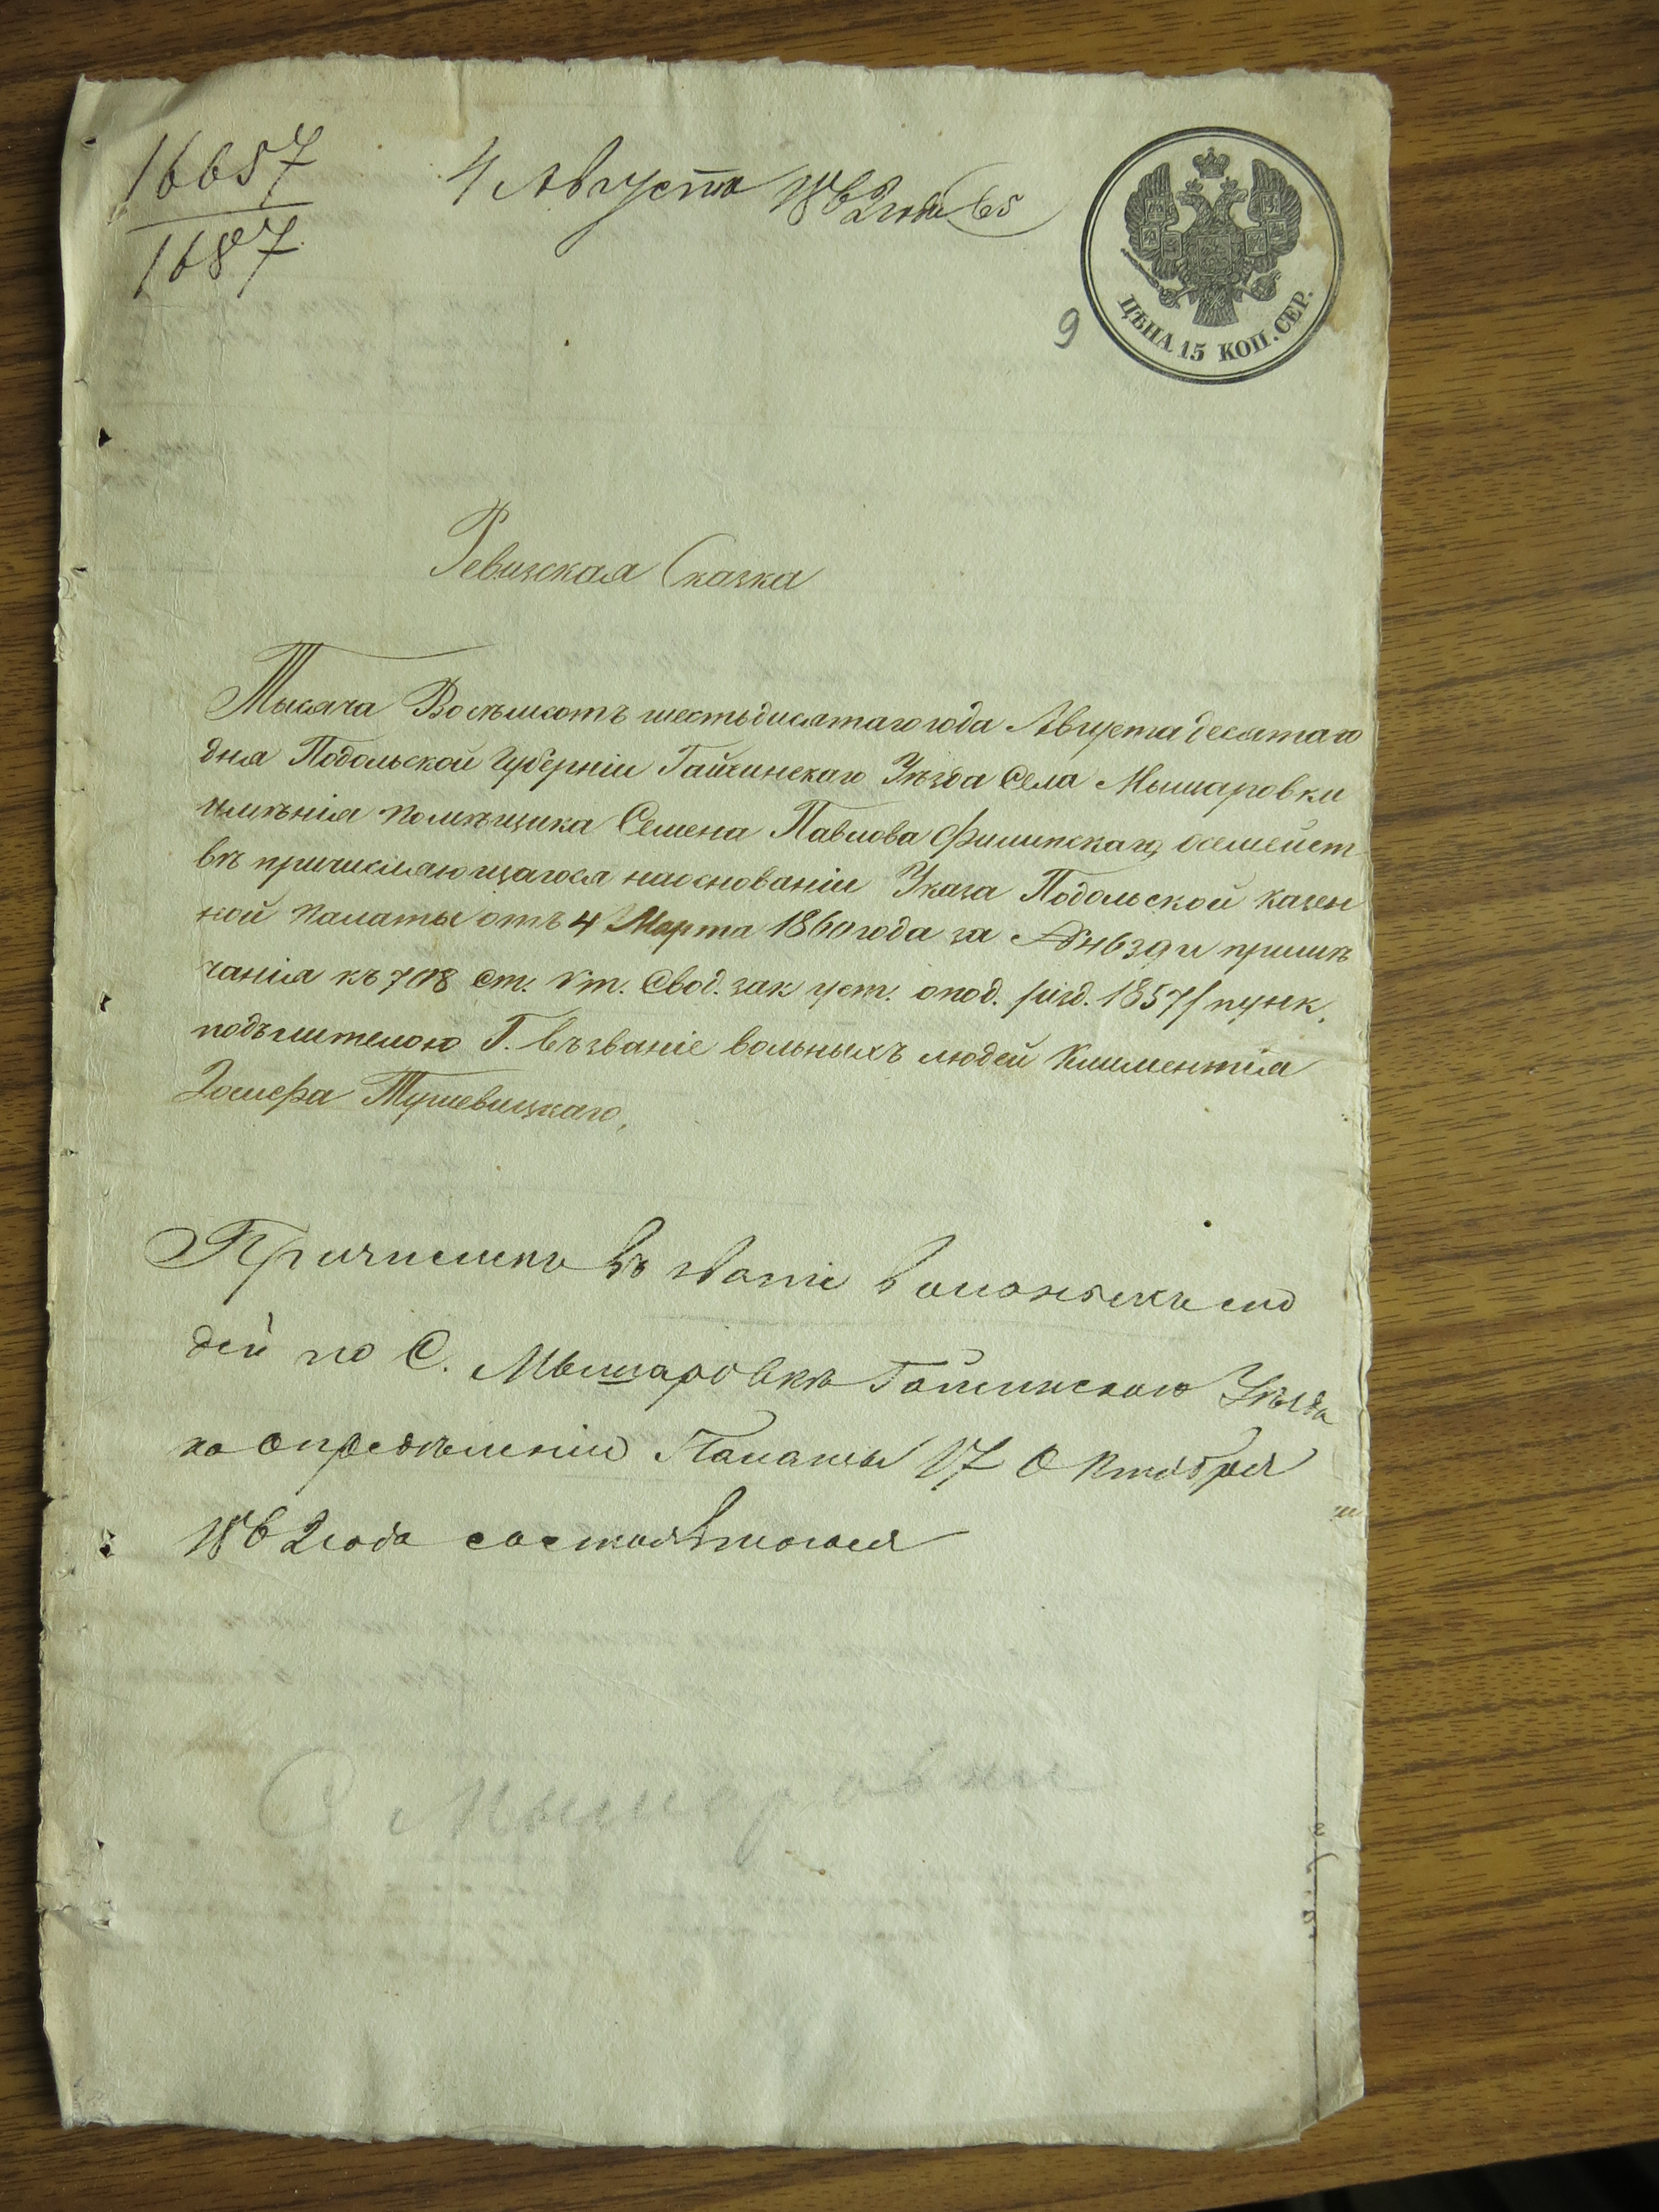 16657
1687
4 Августа 1862 года 65
ЦѢНА 15 КОП. СЕР.
9
Ревизская Сказка
Тысяча Восѣмсотъ шестьдисятаго года Августа десятаго
дня Подольской Губерніи Гайсинскаго Уѣзда Села Мышаровки
имѣнія помѣщика Семена Павлова Филипскаго, осемейст
вѣ причисляющагося наоснованіи Указа Подольской казен
ной палаты отъ 4 Марта 1860 года за № 4639 и примѣ
чанія къ 708 ст. V т. Свод. зак уст. опод. /изд. 1857/ пунк.
подълитерою Г. възваніе вольныхъ людей Климентія
Іосифа Тушевицкаго,
Причисленъ въ званіе вольныхъ лю
дей по С. Мышаровкѣ Гайсинскаго Уѣзда
по опредѣленію Палаты 17 Октября
1862 года состоявшогося
С Мышаровки